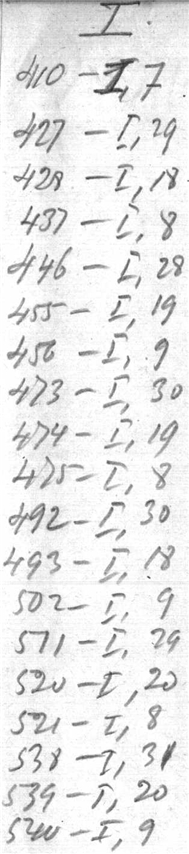 I
410 - I, 7
427 - I, 29
428 - I, 18
437 - I, 8
446 - I, 28
455 - I, 19
456 - I, 9
473 - I, 30
474 - I, 19
475 - I, 8
492 - I, 30
493 - I, 18
502 - I, 9
511 - I, 29
520 - I, 20
521 - I, 8
538 - I, 31
539 - I, 20
540 - I, 9